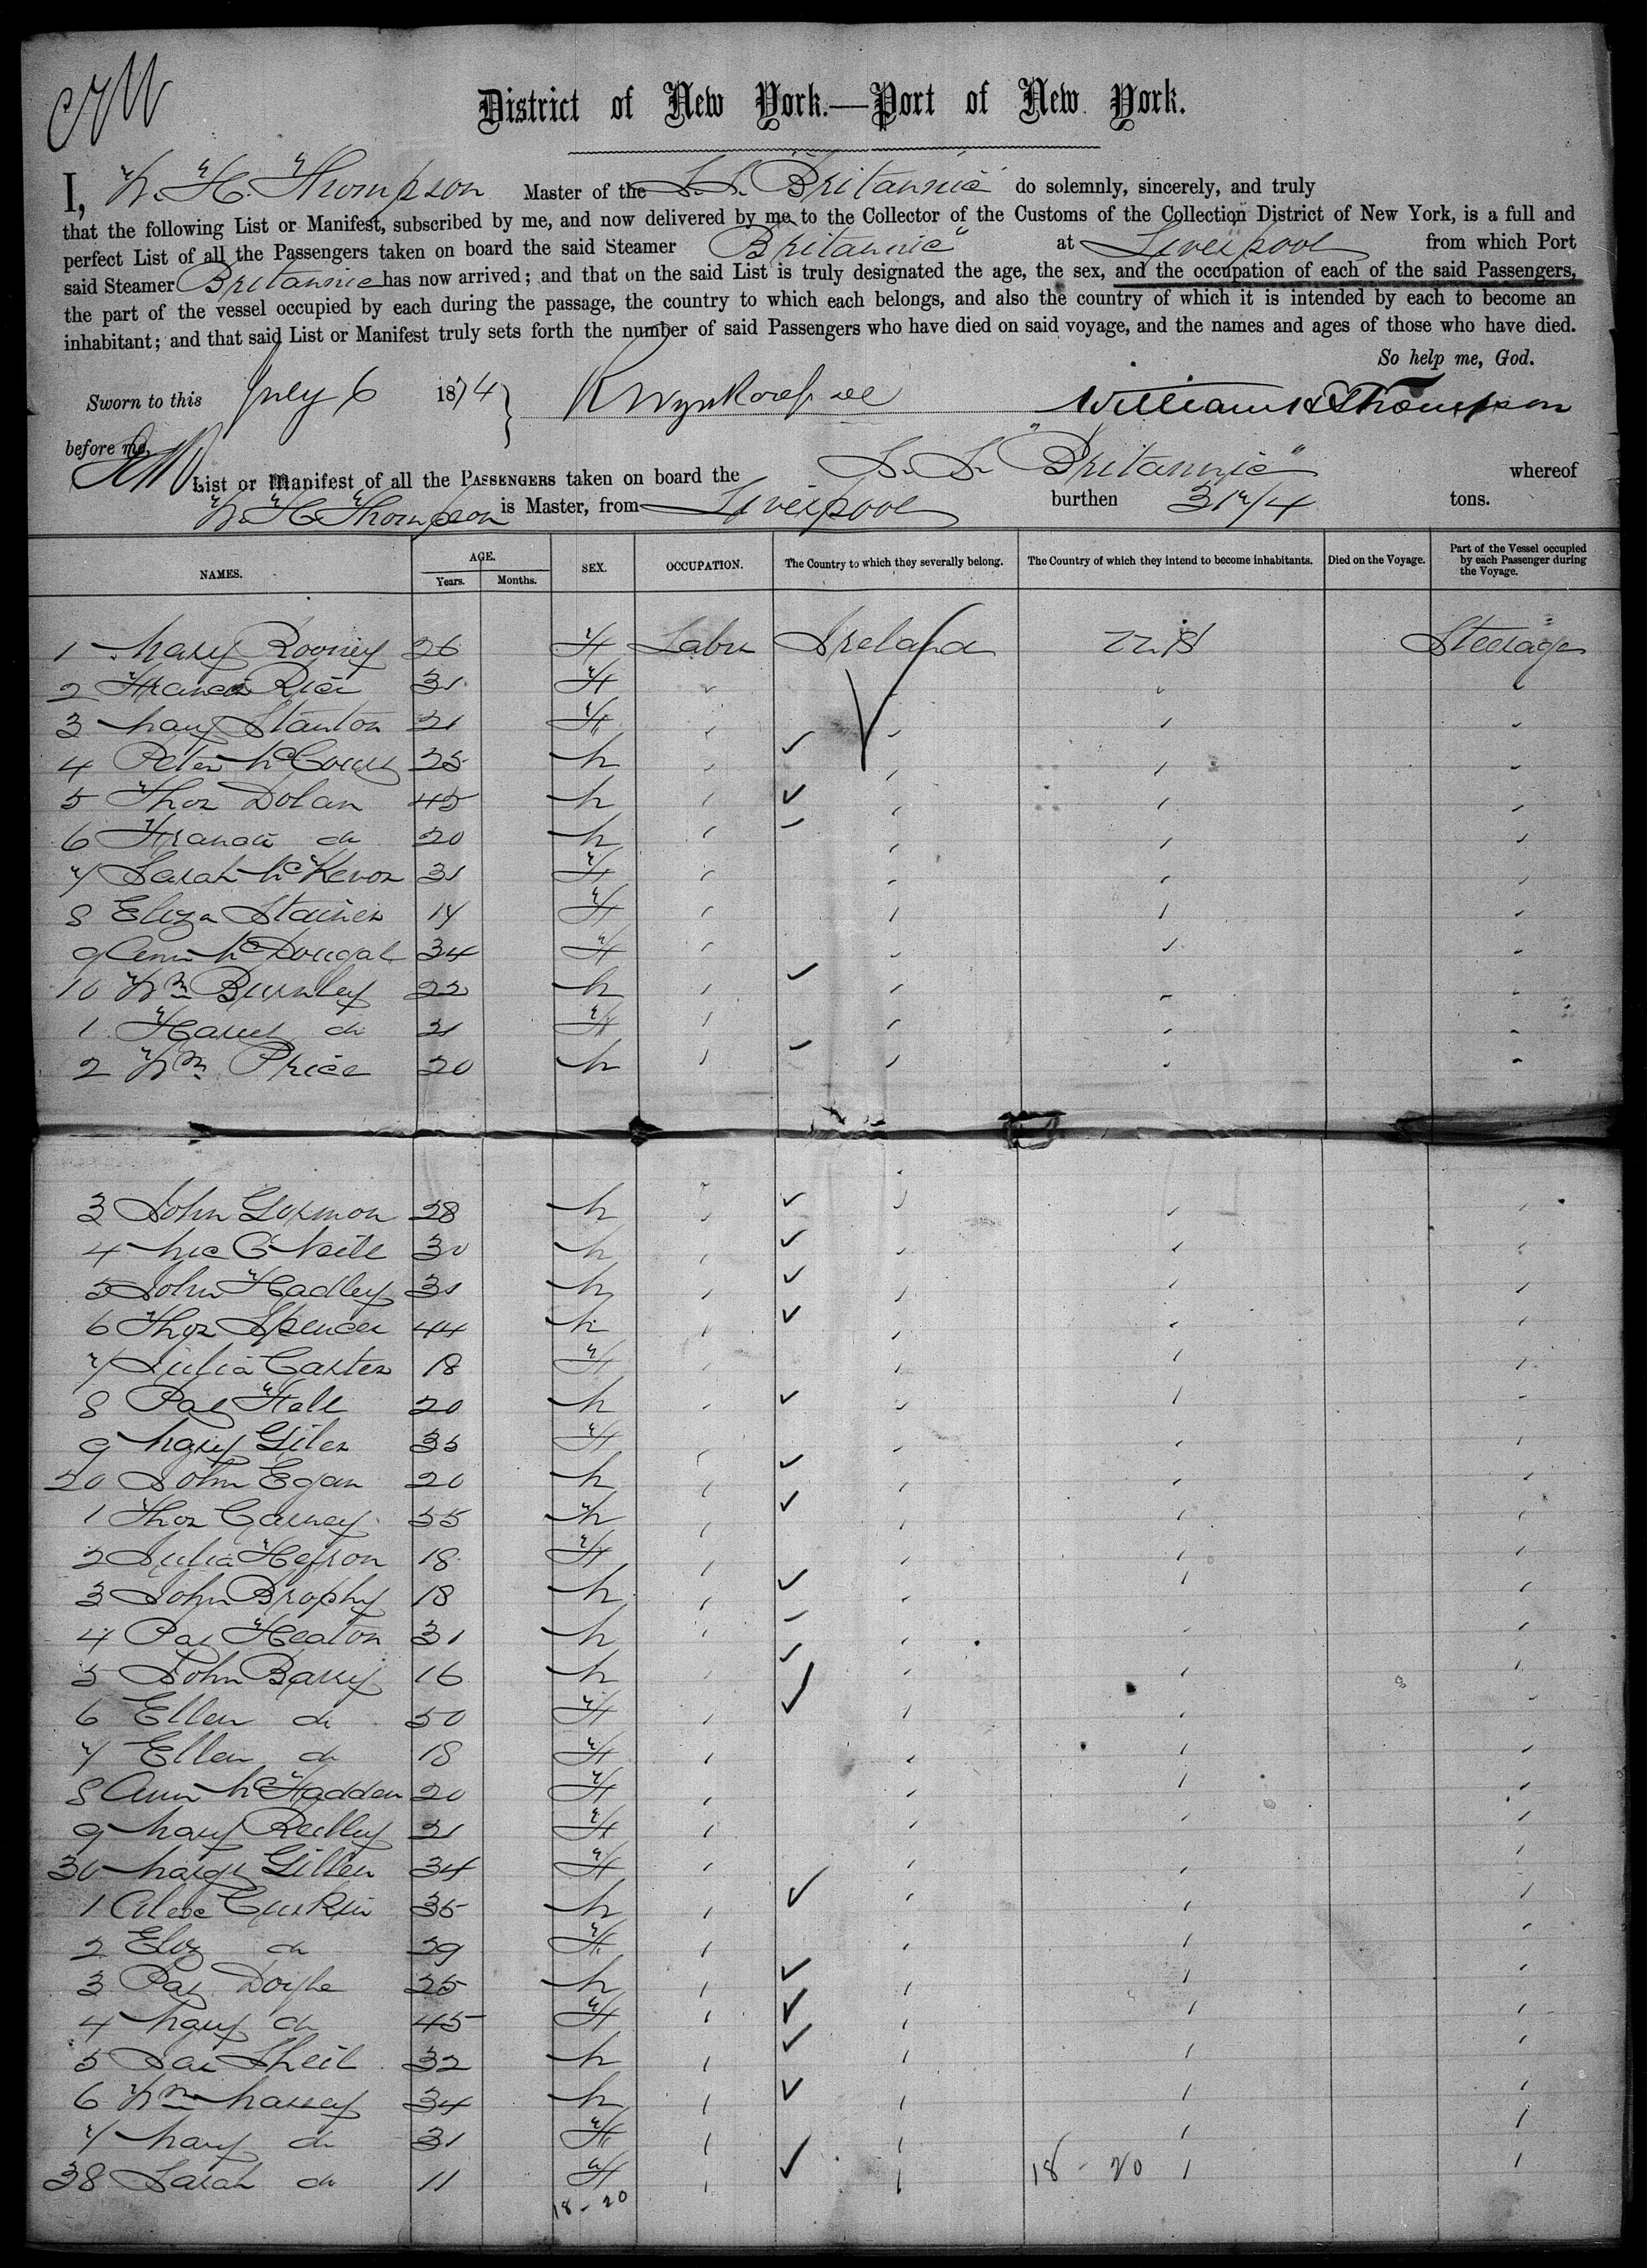 District of New York.—Port of New York.
I, W. H. Thompson Master of the S.S. "Britannic" do solemnly, sincerely, and truly
that the following List or Manifest, subscribed by me, and now delivered by me to the Collector of the Customs of the Collection District of New York, is a full and
perfect List of all the Passengers taken on board the said Steamer Britannic" at Liverpool from which Port
said Steamer Britannic has now arrived; and that on the said List is truly designated the age, the sex, and the occupation of each of the said Passengers,
the part of the vessel occupied by each during the passage, the country to which each belongs, and also the country of which it is intended by each to become an
inhabitant; and that said List or Manifest truly sets forth the number of said Passengers who have died on said voyage, and the names and ages of those who have died.
So help me, God.
Sworn to this July 6 1874 William H Thompson
before me,
List or Manifest of all the PASSENGERS taken on board the S.S. "Britannic" whereof
W. H. Thompson is Master, from Liverpool burthen 3174 tons.
NAMES. AGE. Years. Months. SEX. OCCUPATION. The Country to which they severally belong. The Country of which they intend to become inhabitants. Died on the Voyage. Part of the Vessel occupied by each Passenger during the Voyage.
1 Mary Rooney 26 F Labr Ireland U.S Steerage
2 Frances Rice 31 F
3 Mary Stanton 21 F
4 Peter 25 M
5 Thos Dolan 45 M
6 Francis do 20 M
7 Sarah McKevor 31 F
8 Eliza Staines 17 F
9 Ann McDougal 34 F
10 Wm Burnley 22 M
1 do 21 F
2 Wm Price 20 M
3 John 28 M
4 Mic O'Neill 30 M
5 John Hadley 31 M
6 Thos Spencer 44 M
7 Julia Carter 18 F
8 Pat Hall 20 M
9 Mary Giles 35 F
20 John Egan 20 M
1 Thos Carney 55 M
2 Julia Hefron 18 F
3 John Brophy 18 M
4 Pat Heaton 31 M
5 John Barry 16 M
6 Ellen do 50 F
7 Ellen do 18 F
8 Ann McFadden 20 F
9 Mary Reilly 21 F
30 Margt Gillen 34 F
1 Alex 35 M
2 Eliz do 29 F
3 Pat Doyle 25 M
4 Mary do 45 F
5 Jas Sheil 32 M
6 Wm Massey 34 M
7 Mary do 31 F
38 Sarah do 11 F 18 - 20
18 - 20